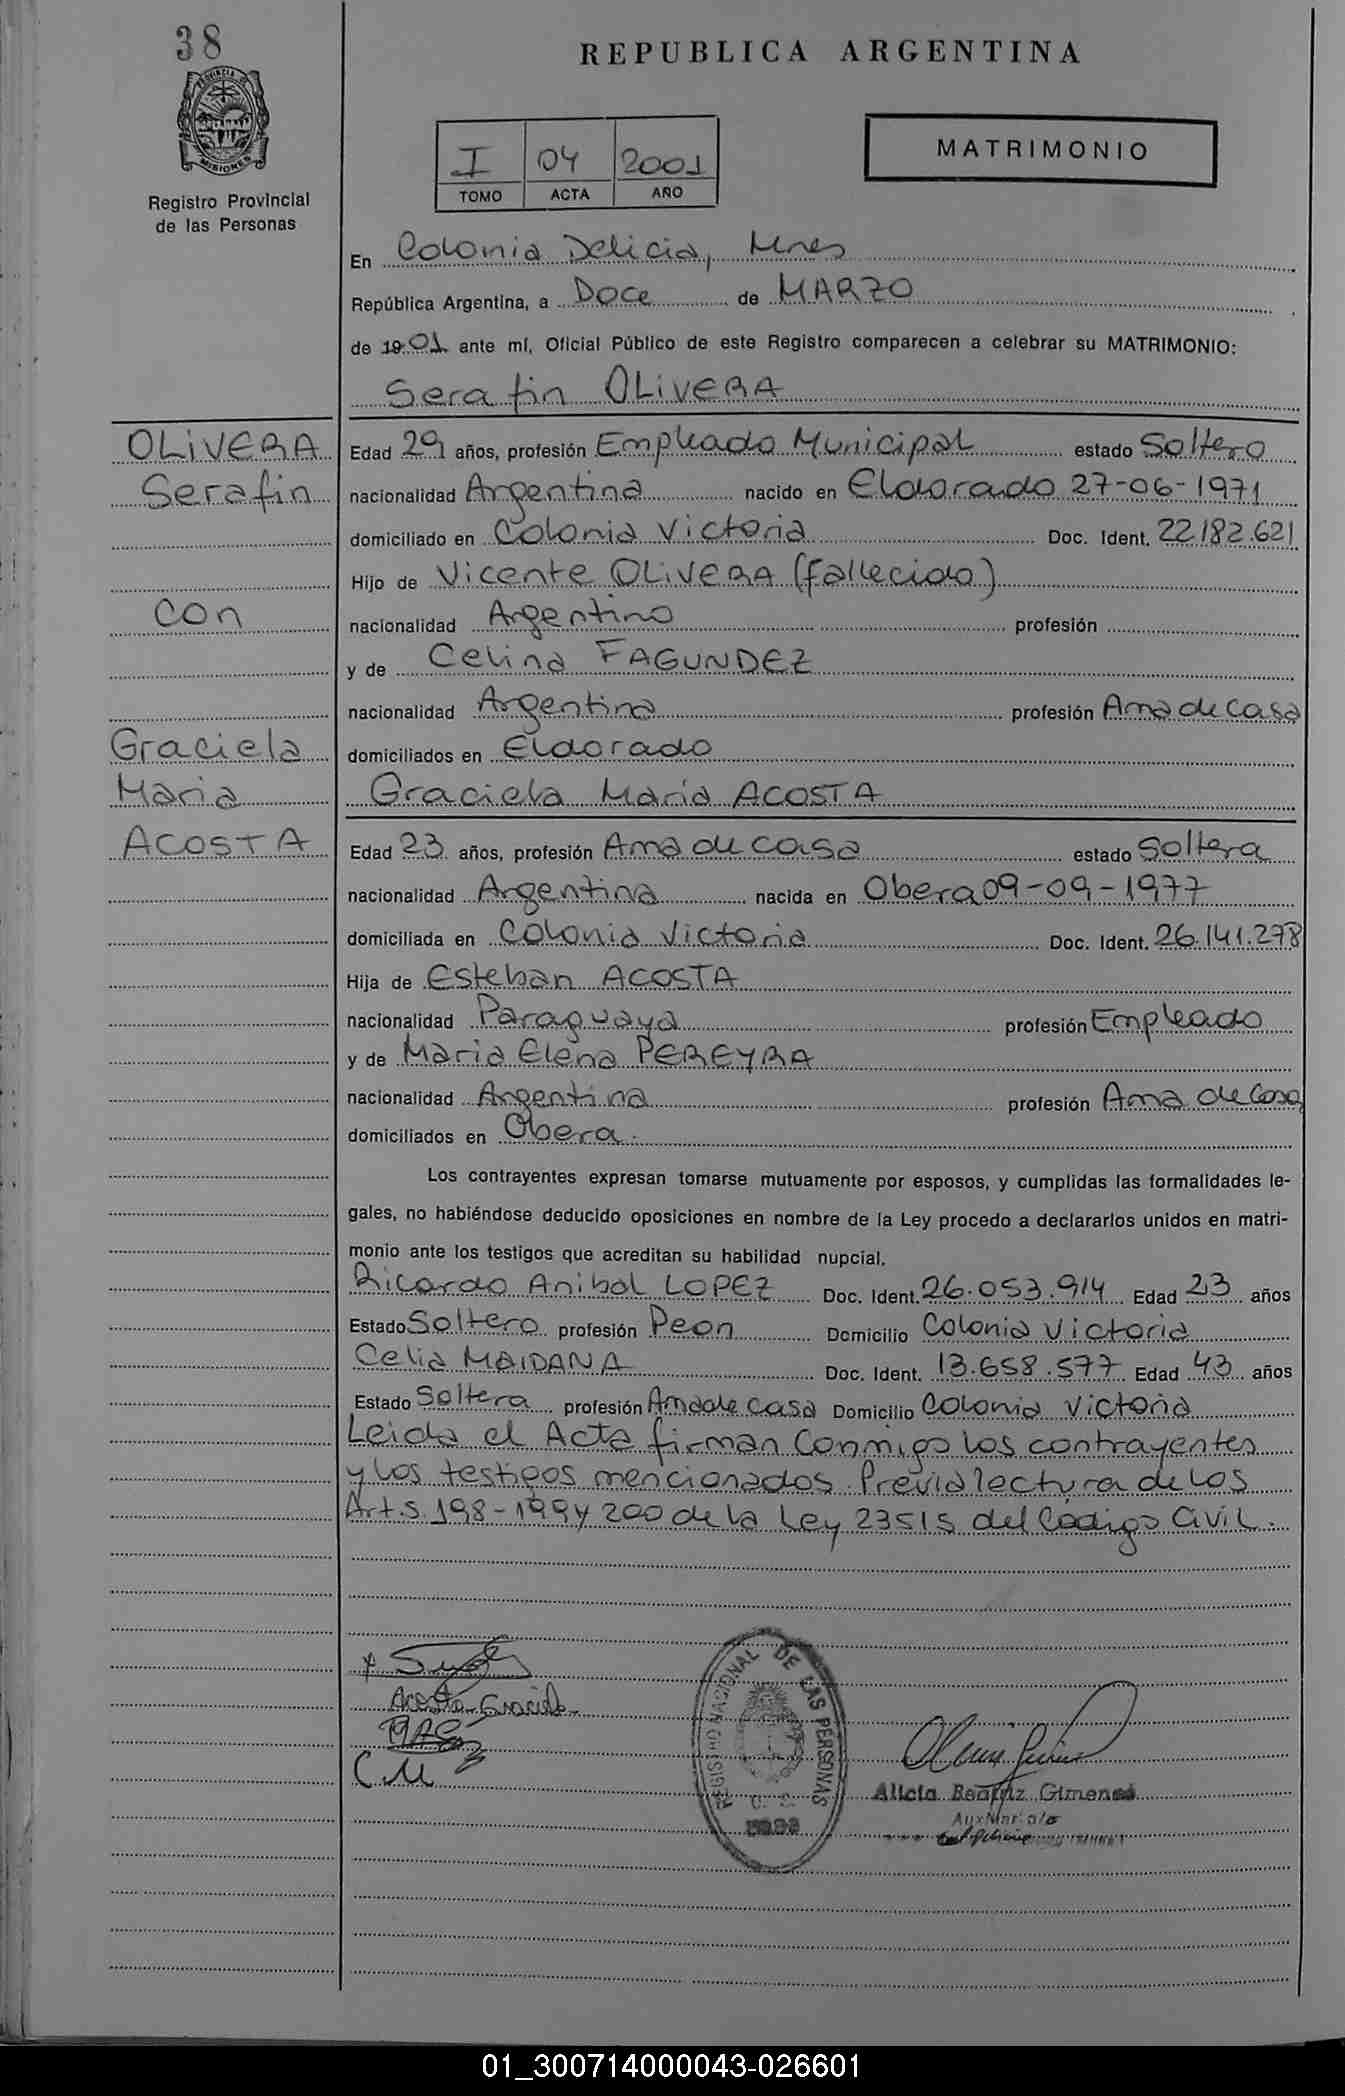 38
REPUBLICA ARGENTINA
PROVINCIA DE MISIONES
Registro Provincial
de las Personas
I 04 2001
TOMO ACTA AÑO
MATRIMONIO
En Colonia Delicia, Mnes
República Argentina, a Doce de MARZO
de 19 01 ante mí, Oficial Público de este Registro comparecen a celebrar su MATRIMONIO:
Serafin OLIVERA
OLIVERA
Serafin
con
Graciela
Maria
ACOSTA
Edad 29 años, profesión Empleado Municipal estado Soltero
nacionalidad Argentina nacido en Eldorado 27-06-1971
domiciliado en Colonia Victoria Doc. Ident. 22.182.621
Hijo de Vicente OLIVERA (fallecido)
nacionalidad Argentino profesión
y de Celina FAGUNDEZ
nacionalidad Argentina profesión Ama de casa
domiciliados en Eldorado
Graciela Maria ACOSTA
Edad 23 años, profesión Ama de casa estado Soltera
nacionalidad Argentina nacida en Obera 09-09-1977
domiciliada en Colonia Victoria Doc. Ident. 26.141.278
Hija de Esteban ACOSTA
nacionalidad Paraguaya profesión Empleado
y de Maria Elena PEREYRA
nacionalidad Argentina profesión Ama de Casa
domiciliados en Obera.
Los contrayentes expresan tomarse mutuamente por esposos, y cumplidas las formalidades le-
gales, no habiéndose deducido oposiciones en nombre de la Ley procedo a declararlos unidos en matri-
monio ante los testigos que acreditan su habilidad nupcial.
Ricardo Anibal LOPEZ Doc. Ident. 26.053.914 Edad 23 años
Estado Soltero profesión Peon Domicilio Colonia Victoria
Celia MAIDANA Doc. Ident. 13.658.577 Edad 43 años
Estado Soltera profesión Ama de casa Domicilio Colonia Victoria
Leida el Acta firman Conmigo los contrayentes
y los testigos mencionados. Previa lectura de los
Art.s. 198-199 y 200 de la Ley 23515 del Código Civil.
Acosta Graciela
C M
REGISTRO NACIONAL DE LAS PERSONAS
Alicia Beatriz Gimenez
Auxiliar
01_300714000043-026601